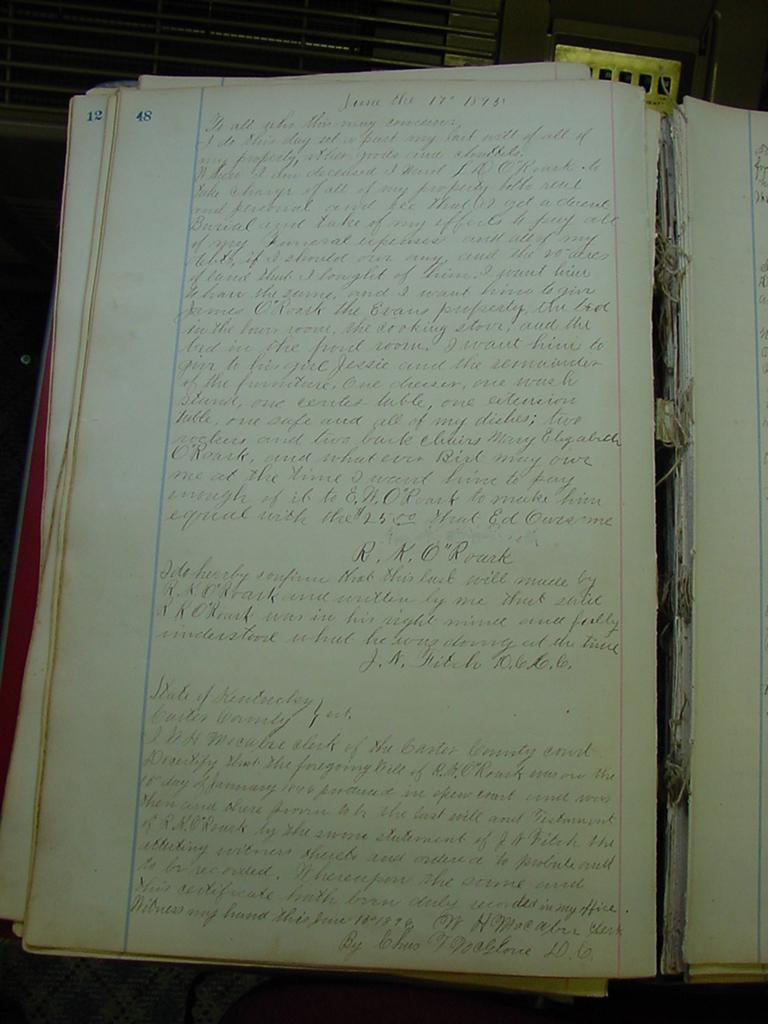 12 48
June the 17th 1895
To all who this may concern,
I do this day set a part my last will of all of
my property, other goods and chattels.
When I am deceased I want J. D. O'Roark to
take charge of all of my property both real
and personal and see that I get a decent
Burial and take of my effects to pay all
of my funeral expenses and all of my
debts, if I should owe any, and the acres
of land that I bought of him. I want him
to have the same, and I want him to give
James O'Roark the Evans property, the bed
in the room, the cooking stove, and the
bed in the front room. I want him to
give to his girl Jessie and the remainder
of the furniture, One dresser, one wash
stand, one center table, one extension
table, one safe and all of my dishes; two
rockers and two bark chairs Mary Elizabeth
O'Roark, and what ever Birt may owe
me at the time I want him to pay
enough of it to E. W. O'Roark to make him
equal with the $25.00 that Ed Owes me
R. K. O'Roark
I do hereby confirm that this last will made by
R. K. O'Roark and written by me that said
R K O'Roark was in his right mind and fully
understood what he was doing at the time
J. N. Fitch D.C.C.C.
State of Kentucky
Carter County Sct.
I W H Mocabee clerk of the Carter County court
Do certify that the foregoing Will of R. K. O'Roark was on the
day of January 1896 produced in open court and was
then and there proven to be the last will and Testament
of R. K. O'Roark by the sworn statement of J N Fitch the
attesting witness thereto and ordered to probate and
to be recorded. Whereupon the same and
this certificate hath been duly recorded in my office.
Witness my hand this June 1896 W H Mocabee Clerk
By Chas McGlone D.C.